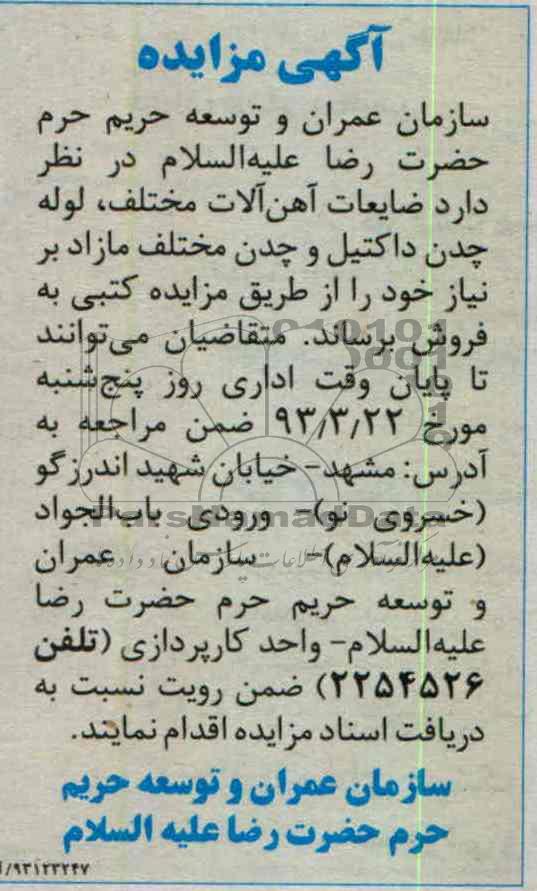 آگهی مزایده
سازمان عمران و توسعه حریم حرم
حضرت رضا علیه‌السلام در نظر
دارد ضایعات آهن‌آلات مختلف، لوله
چدن داکتیل و چدن مختلف مازاد بر
نیاز خود را از طریق مزایده کتبی به
فروش برساند. متقاضیان می‌توانند
تا پایان وقت اداری روز پنج‌شنبه
مورخ ۹۳/۳/۲۲ ضمن مراجعه به
آدرس: مشهد- خیابان شهید اندرزگو
(خسروی نو)- ورودی باب‌الجواد
(علیه‌السلام)- سازمان عمران
و توسعه حریم حرم حضرت رضا
علیه‌السلام- واحد کارپردازی (تلفن
۲۲۵۴۵۲۶) ضمن رویت نسبت به
دریافت اسناد مزایده اقدام نمایند.
سازمان عمران و توسعه حریم
حرم حضرت رضا علیه السلام
/۹۳۱۲۳۲۴۷
ParsNamadData